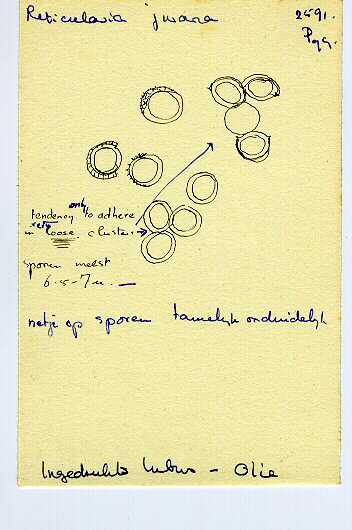 Reticularia jurana
2591.
Pgg.
tendency only to adhere
in very loose clusters
sporen meest
6.5-7 u.
netje op sporen tamelyk onduidelyk
Ingedrukte tubus - Olie